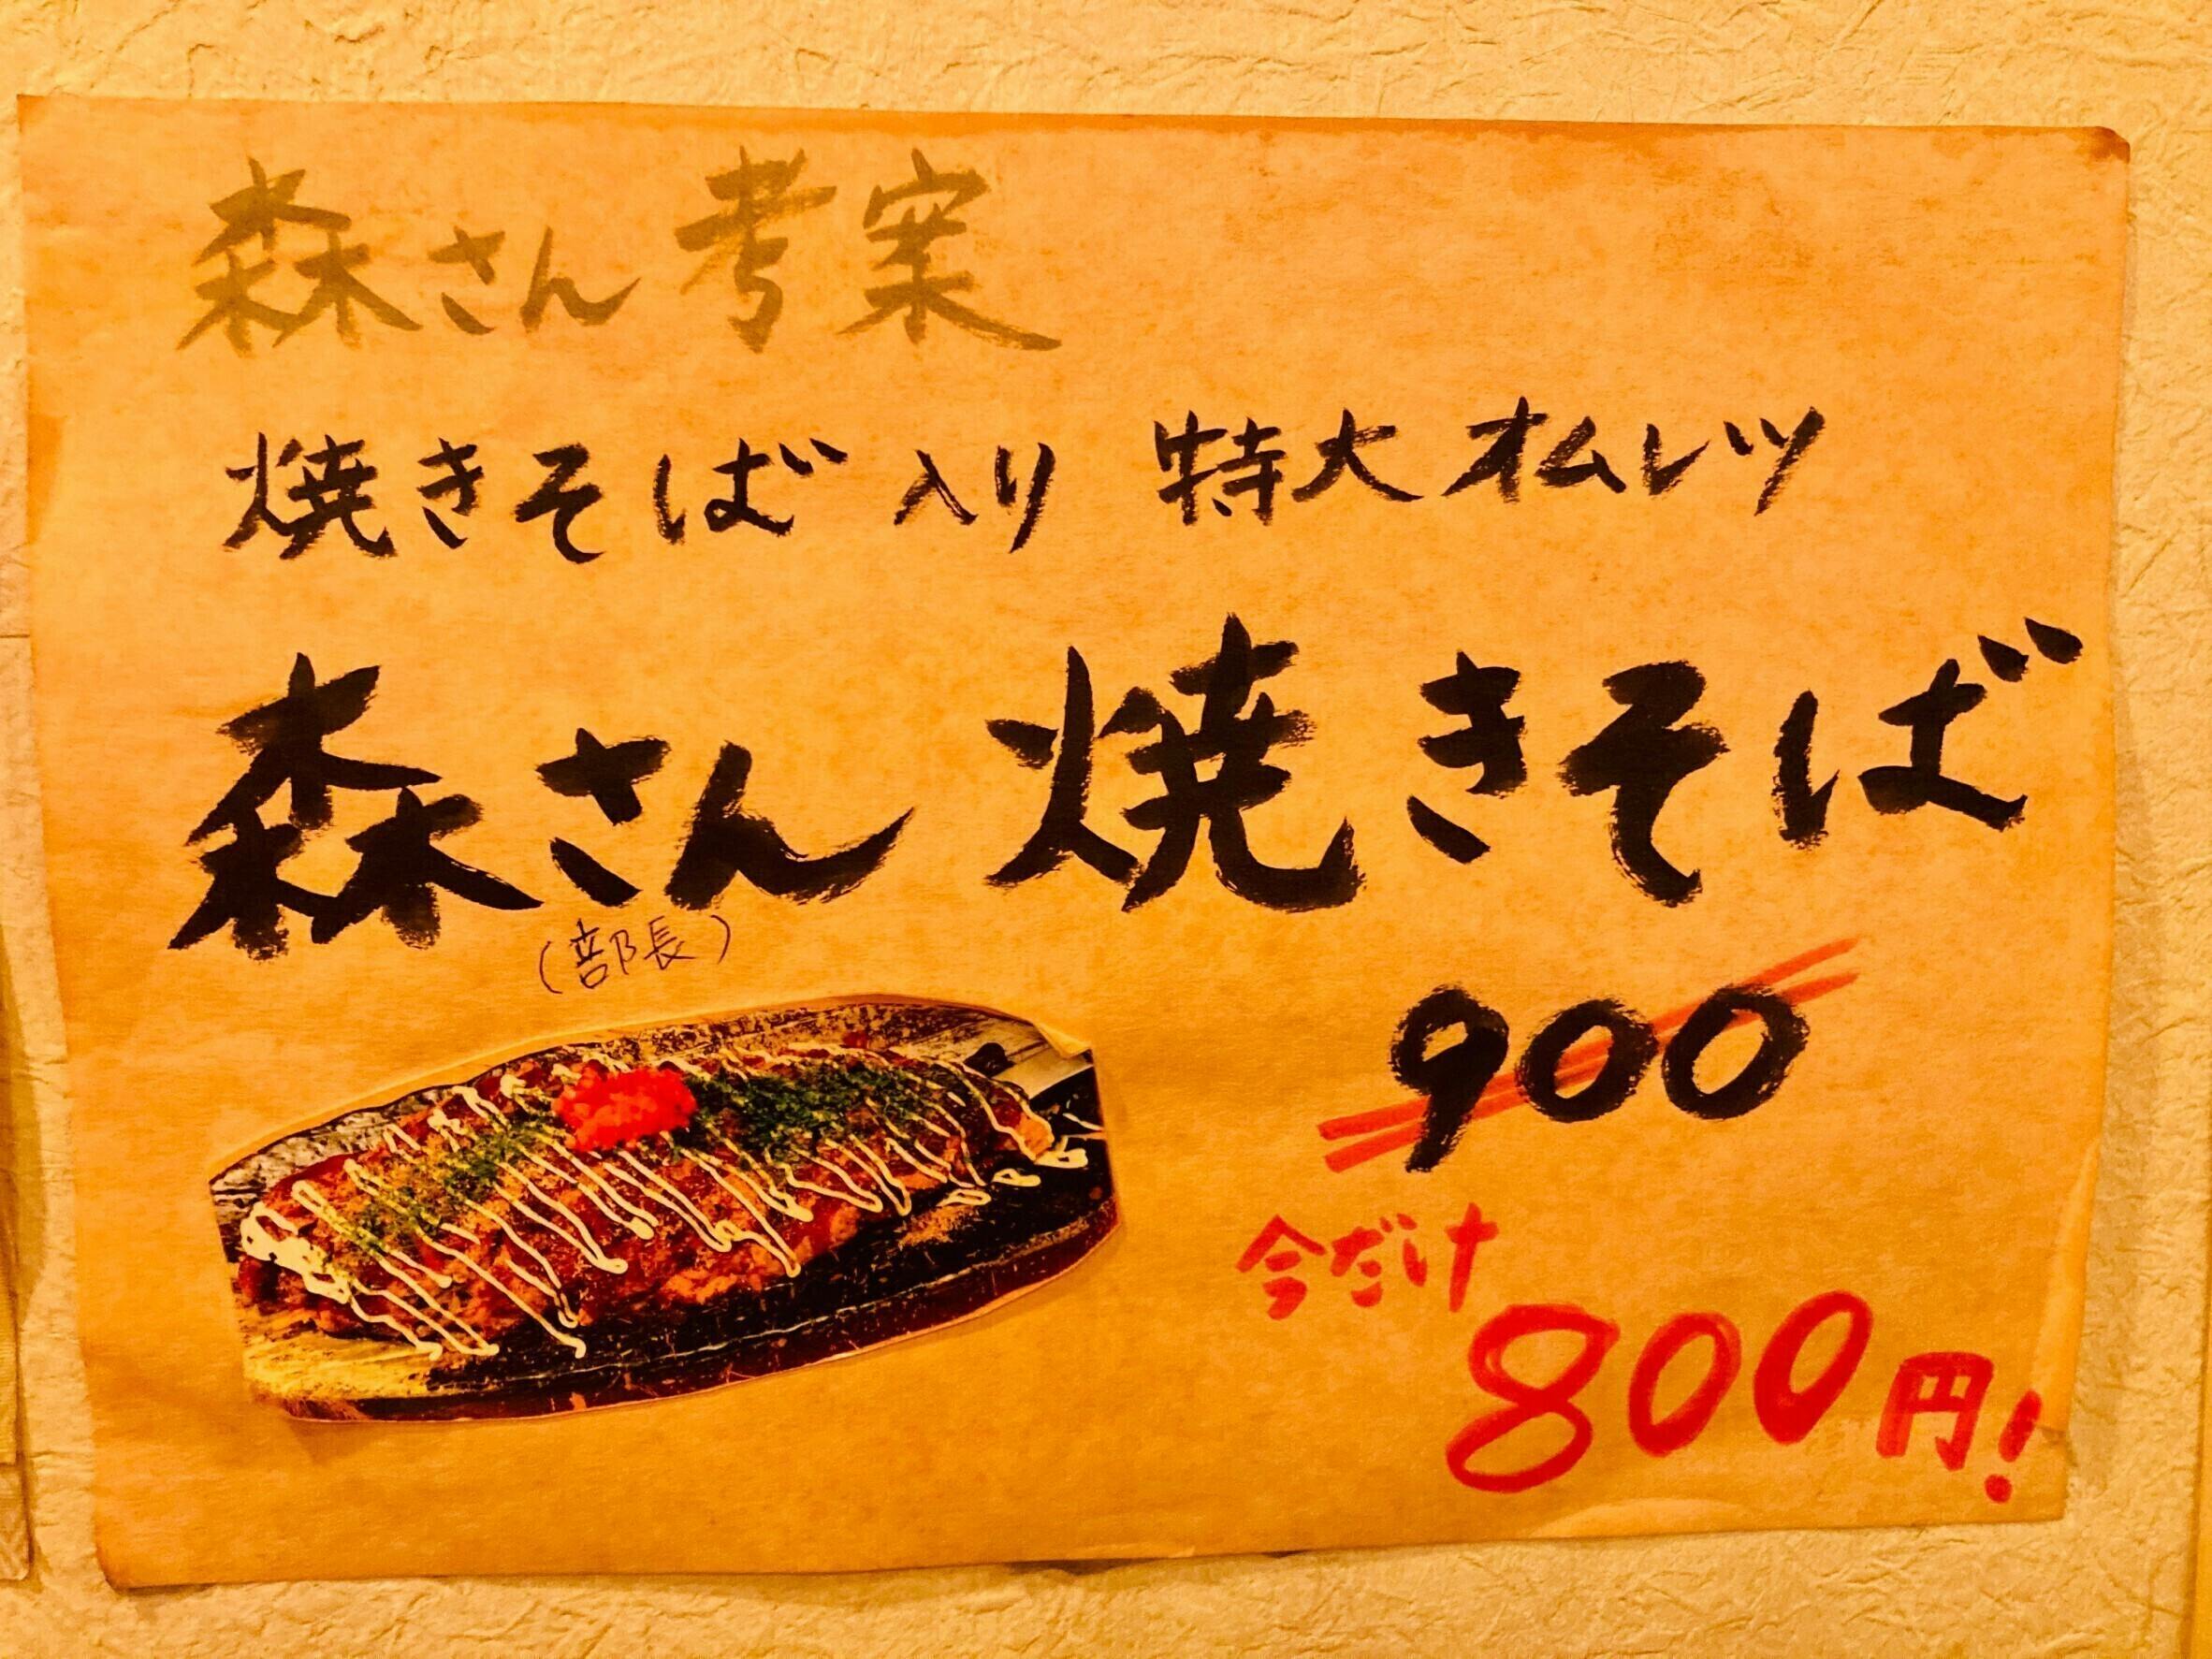 森さん考案
焼きそば入り 特大オムレツ
森さん焼きそば
(部長)
900
今だけ
800円!